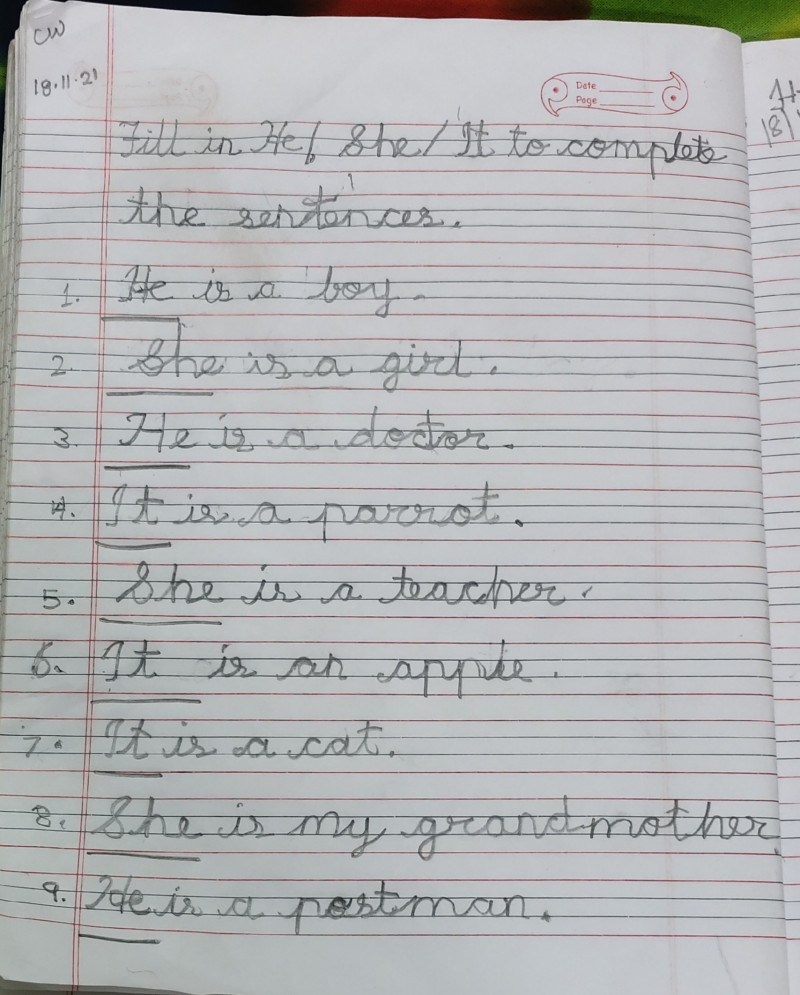 CW
18.11.21
Date
Page
Fill in He/ She/ It to complete
the sentences.
1. He is a boy.
2. She is a girl.
3. He is a doctor.
4. It is a parrot.
5. She is a teacher.
6. It is an apple.
7. It is a cat.
8. She is my grandmother.
9. He is a postman.